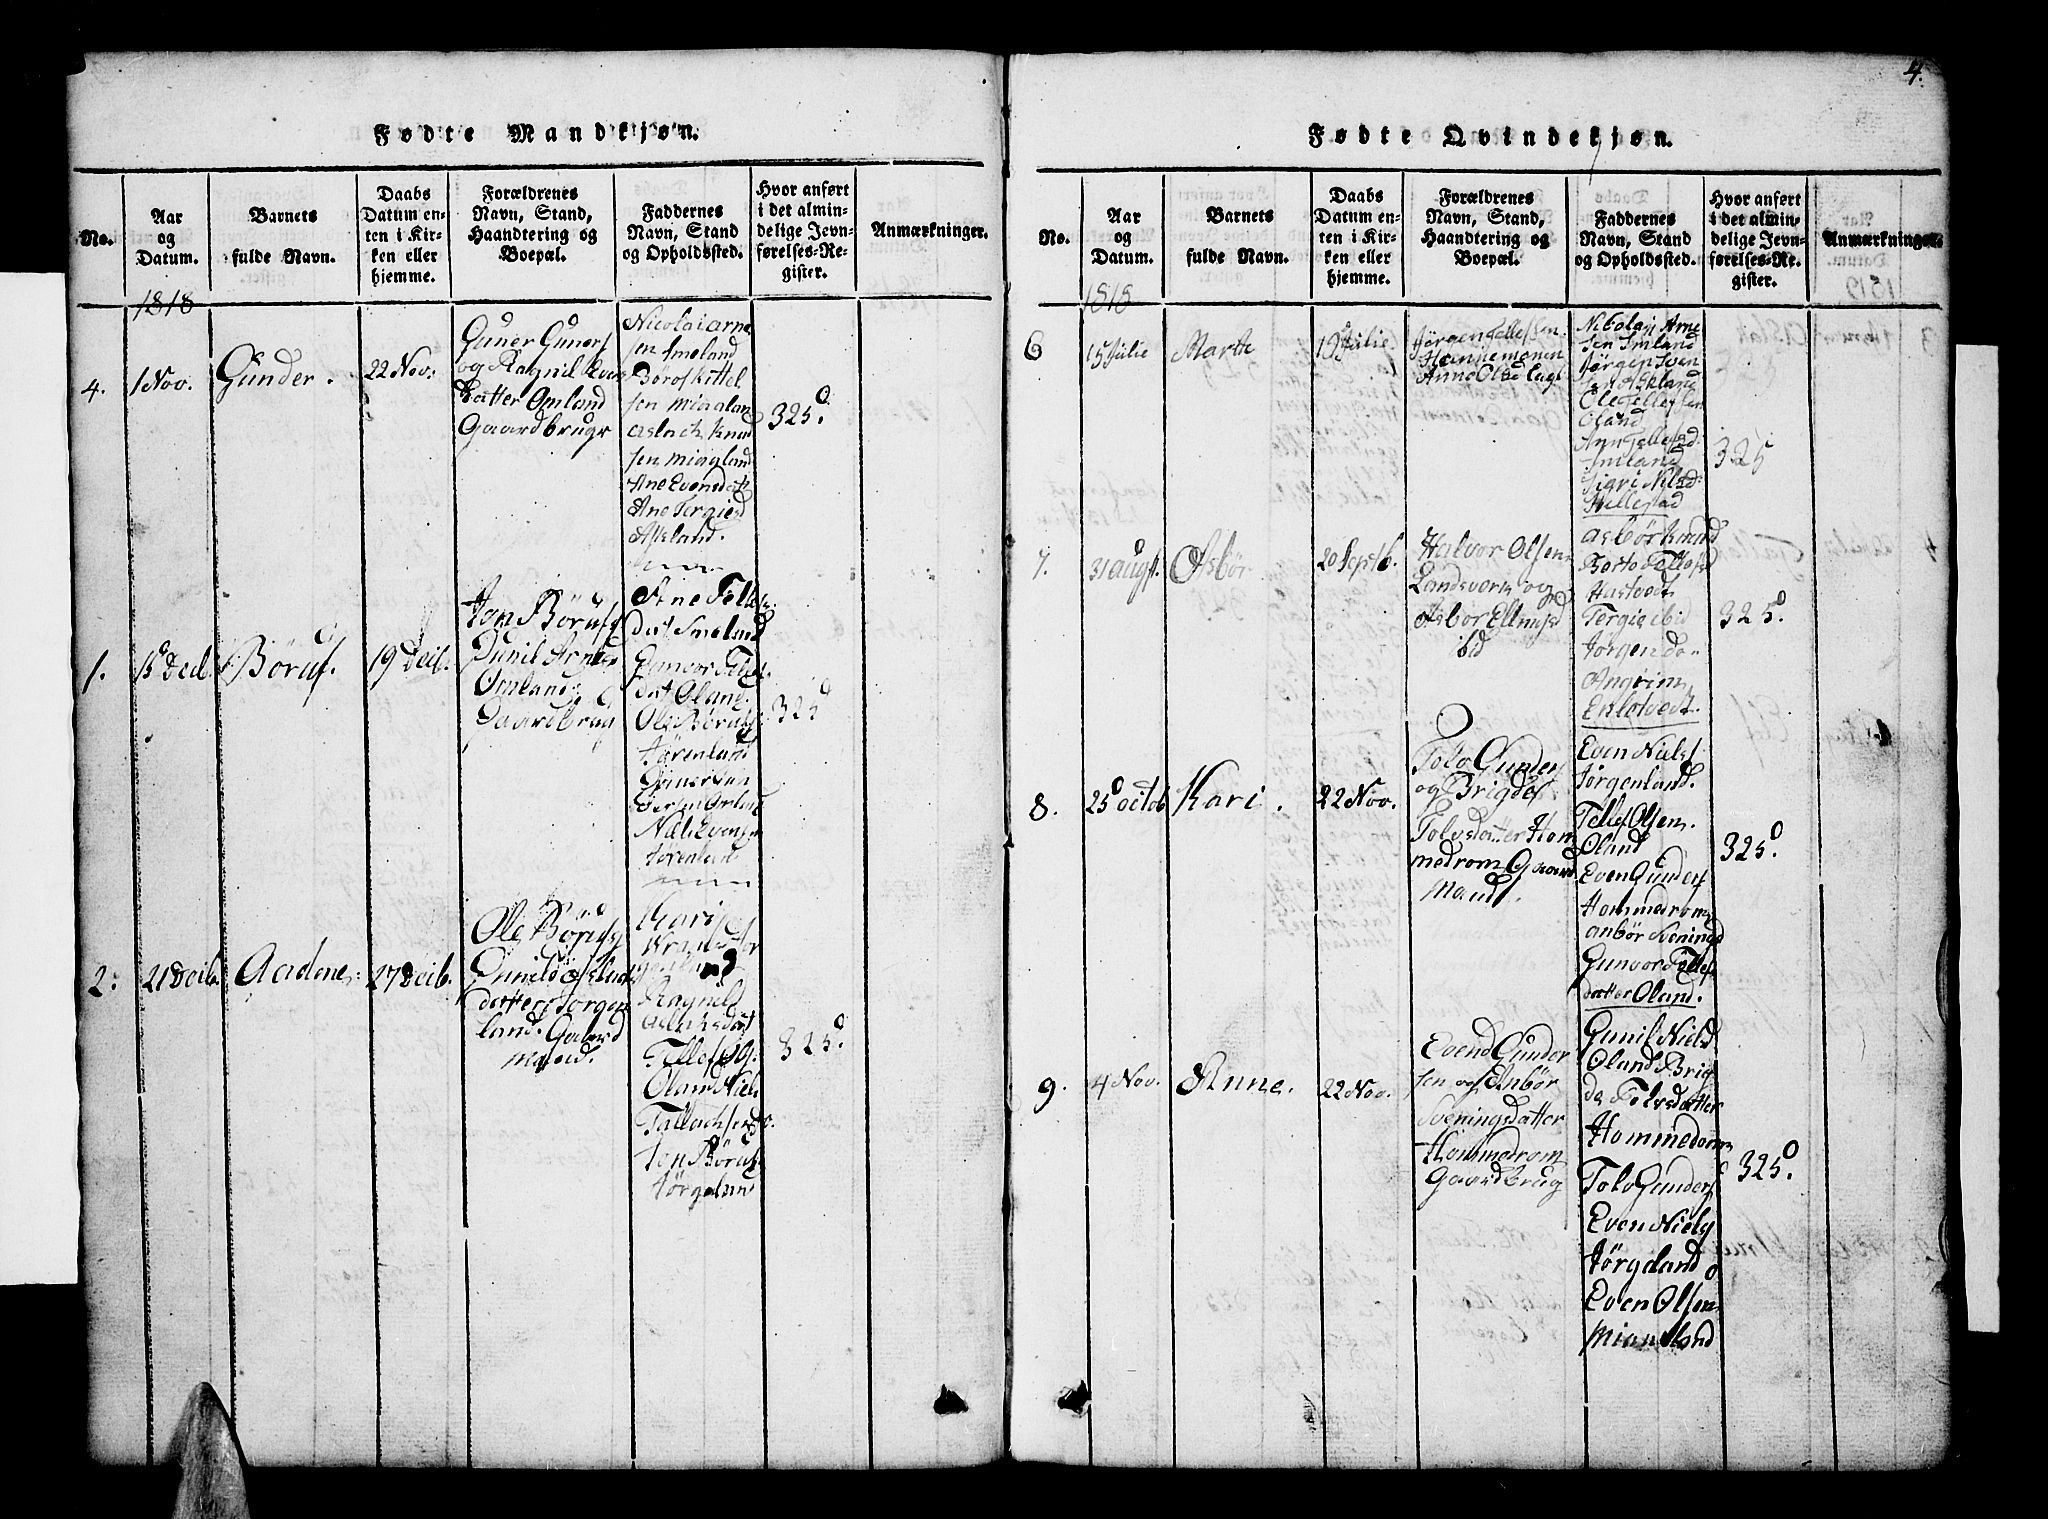 4.
Fødte Mandkjøn.
No.
Aar og Datum.
Barnets fulde Navn.
Daabs Datum enten i Kirken eller hjemme.
Forældrenes Navn, Stand, Haandtering og Boepæl.
Faddernes Navn, Stand og Opholdssted.
Hvor anført i det almindelige Jevnførelses-Register.
Anmærkninger.
1818
4.
1 Nov.
Gunder.
22 Nov:
Guner Guners
og Ragnil Evens
Datter Omland
Gaardbruger
Nicolai Arne
sen Smeland
Børos Kittel
sen Miaaland
Aslack Knud
sen Miogland
Ane Evensdat
Ane Tergiesd
Askland.
325.
1.
15 Decb.
Børuf.
19 Deib.
Jon Børufs
Gunil Arnes
Omland
Gaardbrug
Ane Tellefs
dat Smeland
Gunvor Telefs
dat Oland.
Ole Børufs
Jørenland
Guner Gun
dersen Omland
Niels Evensen
Jørenland
325
2.
21 Deib.
Aadne
27 Deib.
Ole Børufs
Gunild Aslaks
datter Jorgen
land. Gaard
mand.
Kari
Ragnild
Aslaksdat
Tellef Ols.
Oland Niels
Tallachsen do.
Jon Børufs
Jørgeland
325.
Fødte Qvindekjøn.
No.
Aar og Datum.
Barnets fulde Navn.
Daabs Datum enten i Kirken eller hjemme.
Forældrenes Navn, Stand, Haandtering og Boepæl.
Faddernes Navn, Stand og Opholdssted.
Hvor anført i det almindelige Jevnførelses-Register.
Anmærkninger.
1818
6
15 Julie
Marte
19 Julie
Jørgen Tellefsen
Hannemonen
Anne Olsd
Nikolaj Arne
sen Smland
Jørgen Sven
sen Askland
Ole Tellefsen
Oland
Ann Tellefsd.
Smland
Sigri Nilsd.
Hellestad
325
7.
31 Augst.
Asbør
20 Septb.
Halvor Olsen
Landsverk og
Asbor Ellevsd
ibid
Asbör Knudsd
Berte Tellefsd
Hastvedt
Tergie ibid
Jorgen do
Angrim
Eklelvedt.
325.
8.
25 Octob
Kari.
22 Nov.
Tolv Gunders
og Brigde
Tolvsdatter Hom
medrom Gaard
Mand.
Even Niels
Jørgenland.
Tellef Olsen
Oland
Even Gunders
Hommedrom
Anbør Sveningsd
Gunvor Tellefs
datter Oland.
325.
9.
4 Nov.
Anne.
22 Nov.
Evend Gunder
sen og Anbør
Sveningsdatter
Hommedrom
Gaardbrug
Gunil Nielsd
Oland Brig
de Tolvsdatter
Hommedrom
Tolv Gunders
Even Niels
Jørgeland
Even Olsen
Mianeland
325.